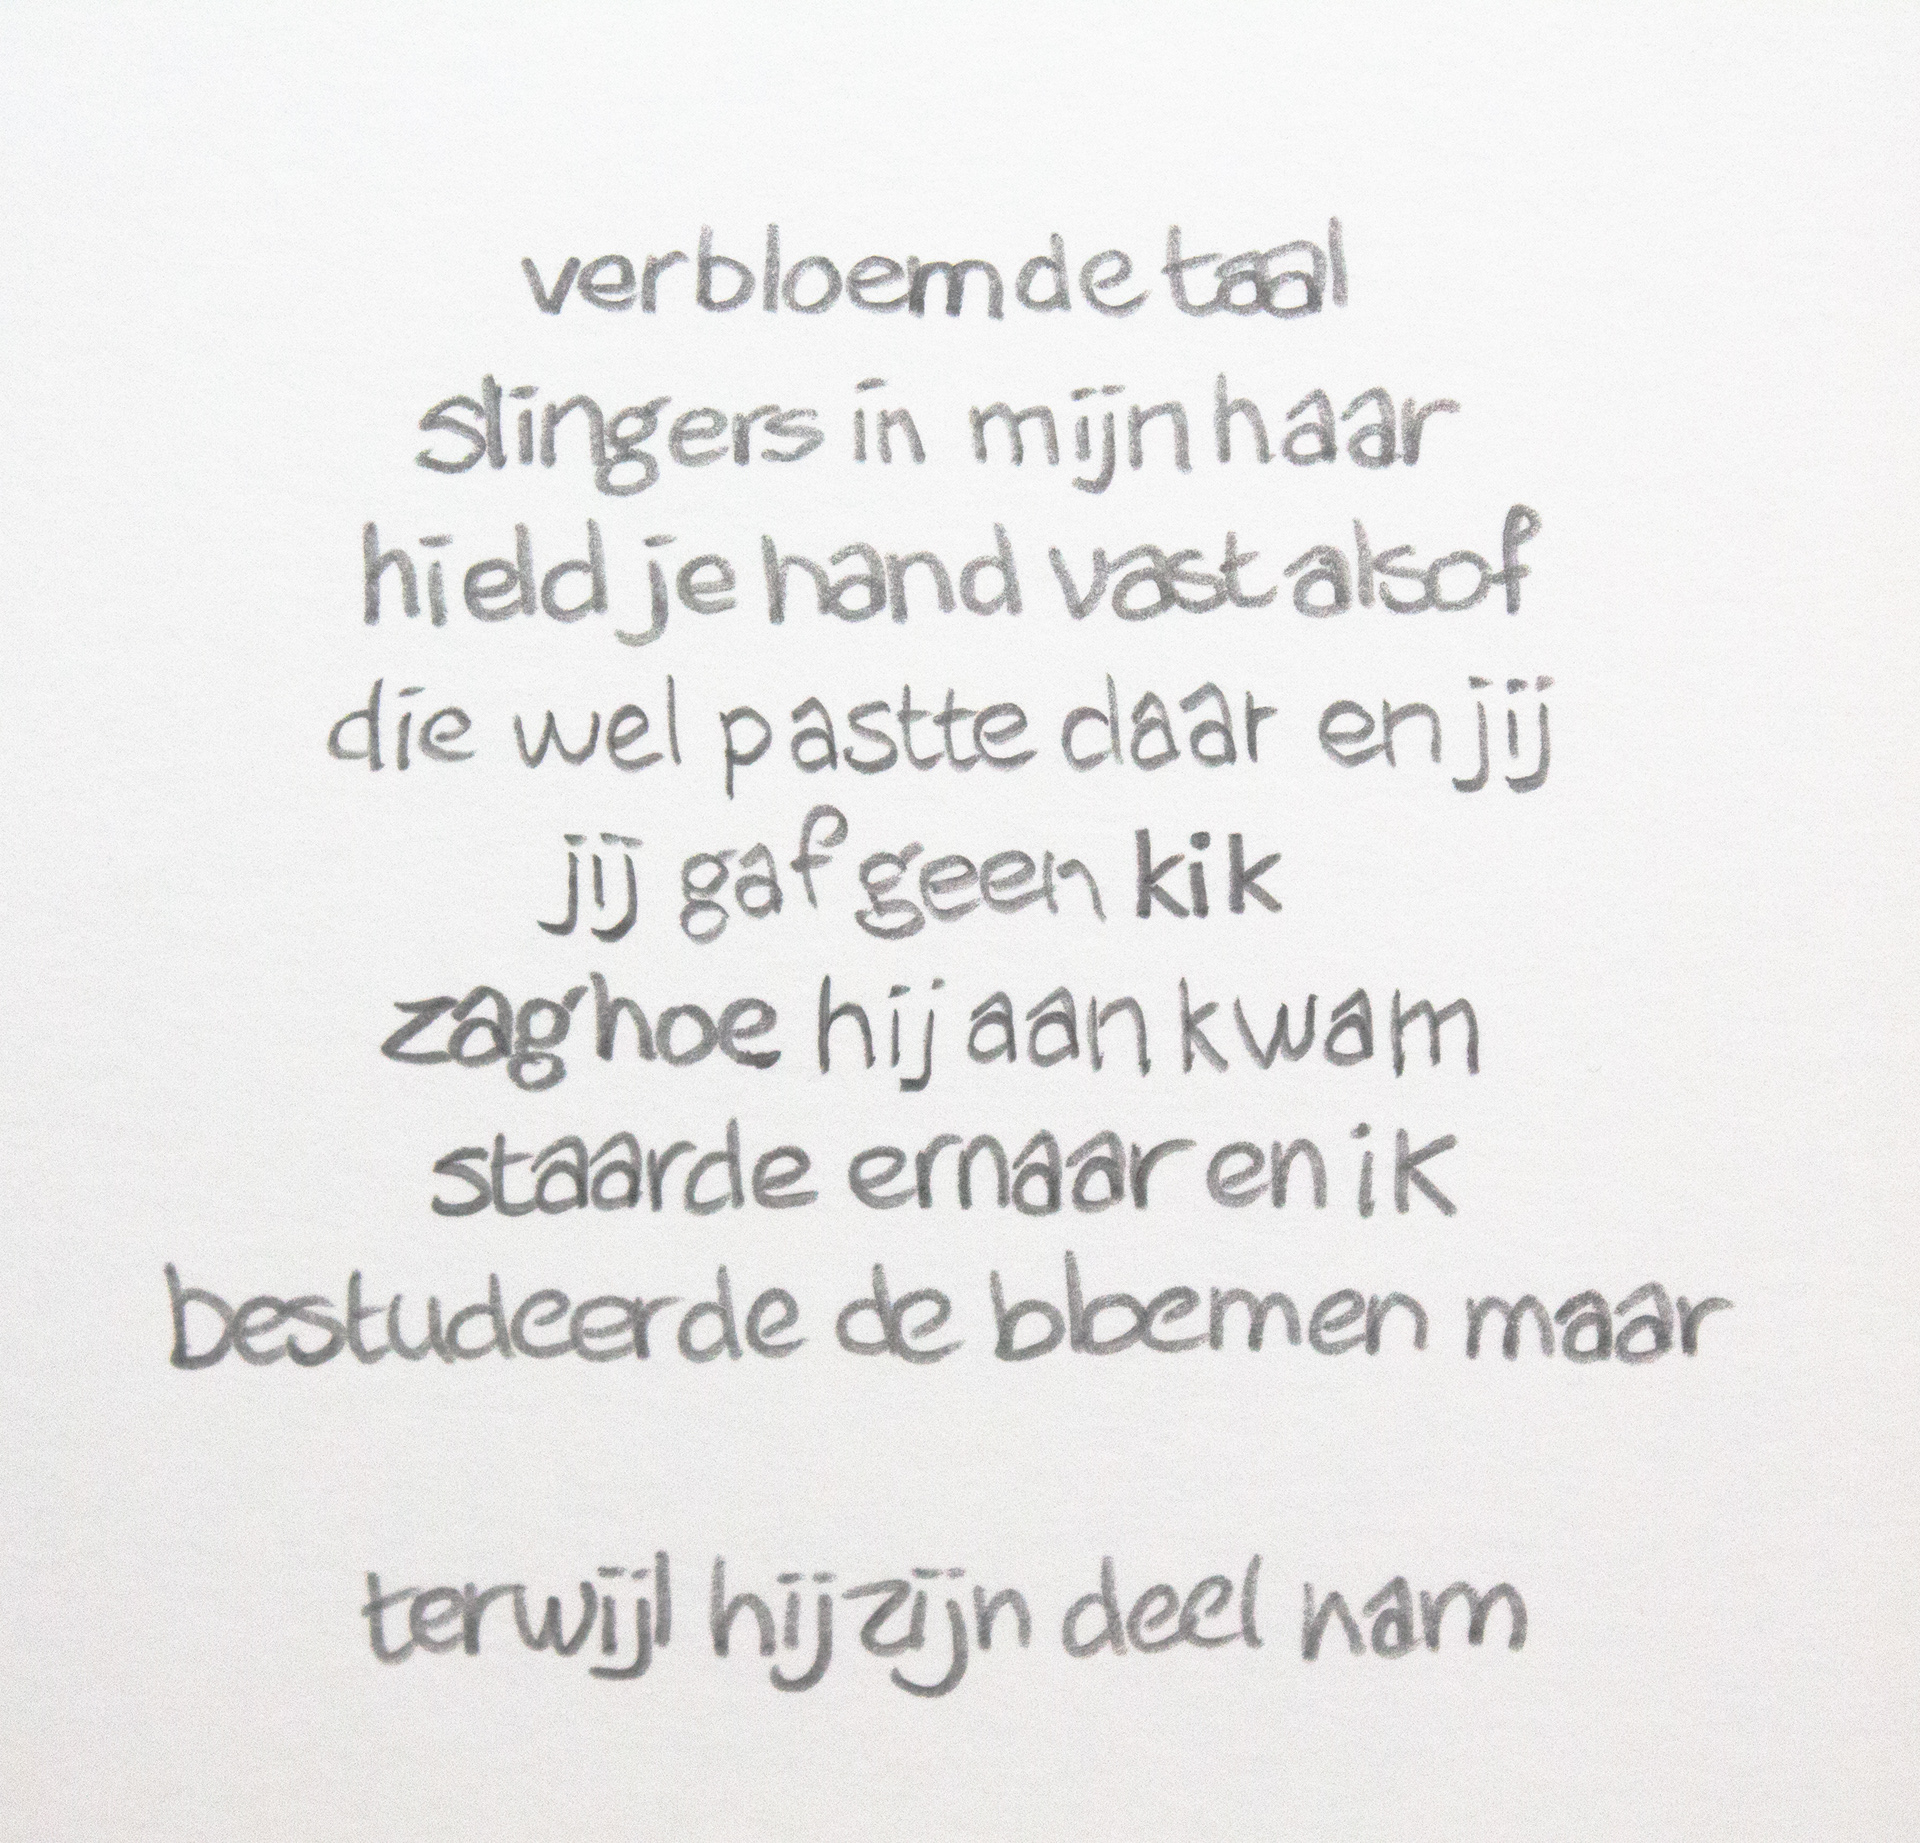 verbloemde taal
slingers in mijn haar
hield je hand vast alsof
die wel pastte daar en jij
jij gaf geen kik
zag hoe hij aan kwam
staarde ernaar en ik
bestudeerde de bloemen maar
terwijl hij zijn deel nam